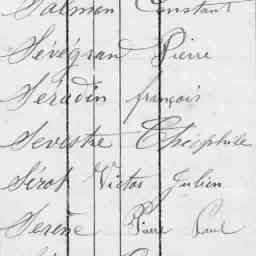 Salmon Constant
Sévégran Pierre
Séradin françois
Sevestre Théophile
Sérot Victor Julien
Serene Pierre Paul